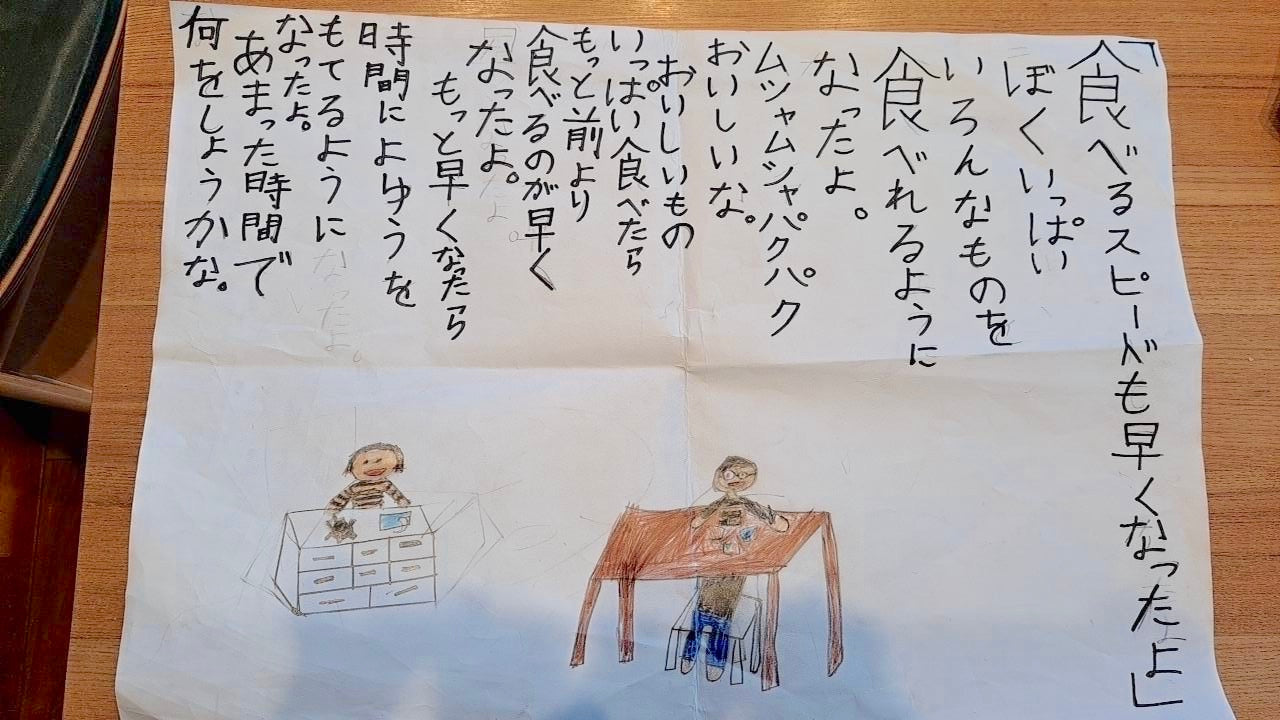 「食べるスピードも早くなったよ」
ぼくいっぱい
いろんなものを
食べれるように
なったよ。
ムシャムシャパクパク
おいしいな。
おいしいもの
いっぱい食べたら
もっと前より
食べるのが早く
なったよ。
もっと早くなたら
時間によゆうを
もてるように
なったよ。
あまった時間で
何をしようかな。